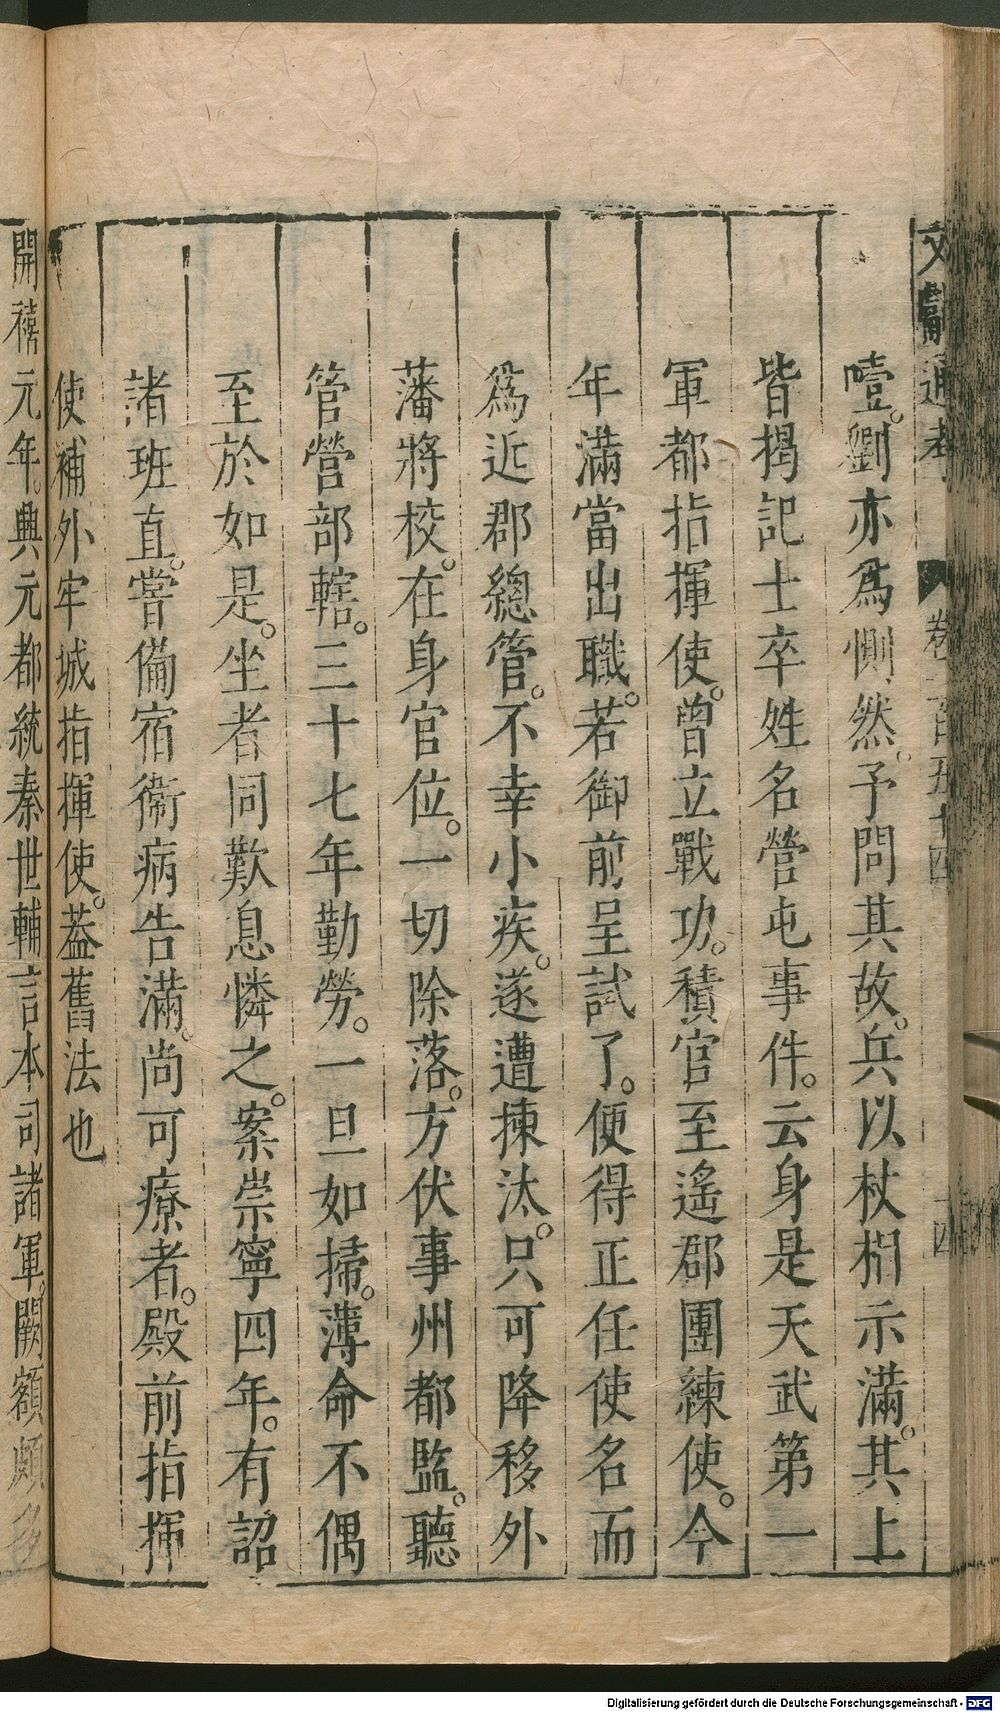 文獻通考 卷一百五十四 十四
噎。劉亦爲惻然。予問其故。兵以杖梢示滿。其上
皆揭記士卒姓名營屯事件。云身是天武第一
軍都指揮使。曾立戰功。積官至遙郡團練使。今
年滿當出職。若御前呈試了。便得正任使名而
爲近郡總管。不幸小疾。遂遭揀汰。只可降移外
藩將校。在身官位。一切除落。方伏事州都監。聽
管營部轄。三十七年勤勞。一旦如掃。薄命不偶
至於如是。坐者同歎息憐之。案崇寧四年。有詔
諸班直。嘗備宿衞病告滿。尚可療者。殿前指揮
使補外牢城指揮使。蓋舊法也
開禧元年。興元都統秦世輔言本司諸軍。闕額頗多
Digitalisierung gefördert durch die Deutsche Forschungsgemeinschaft - DFG